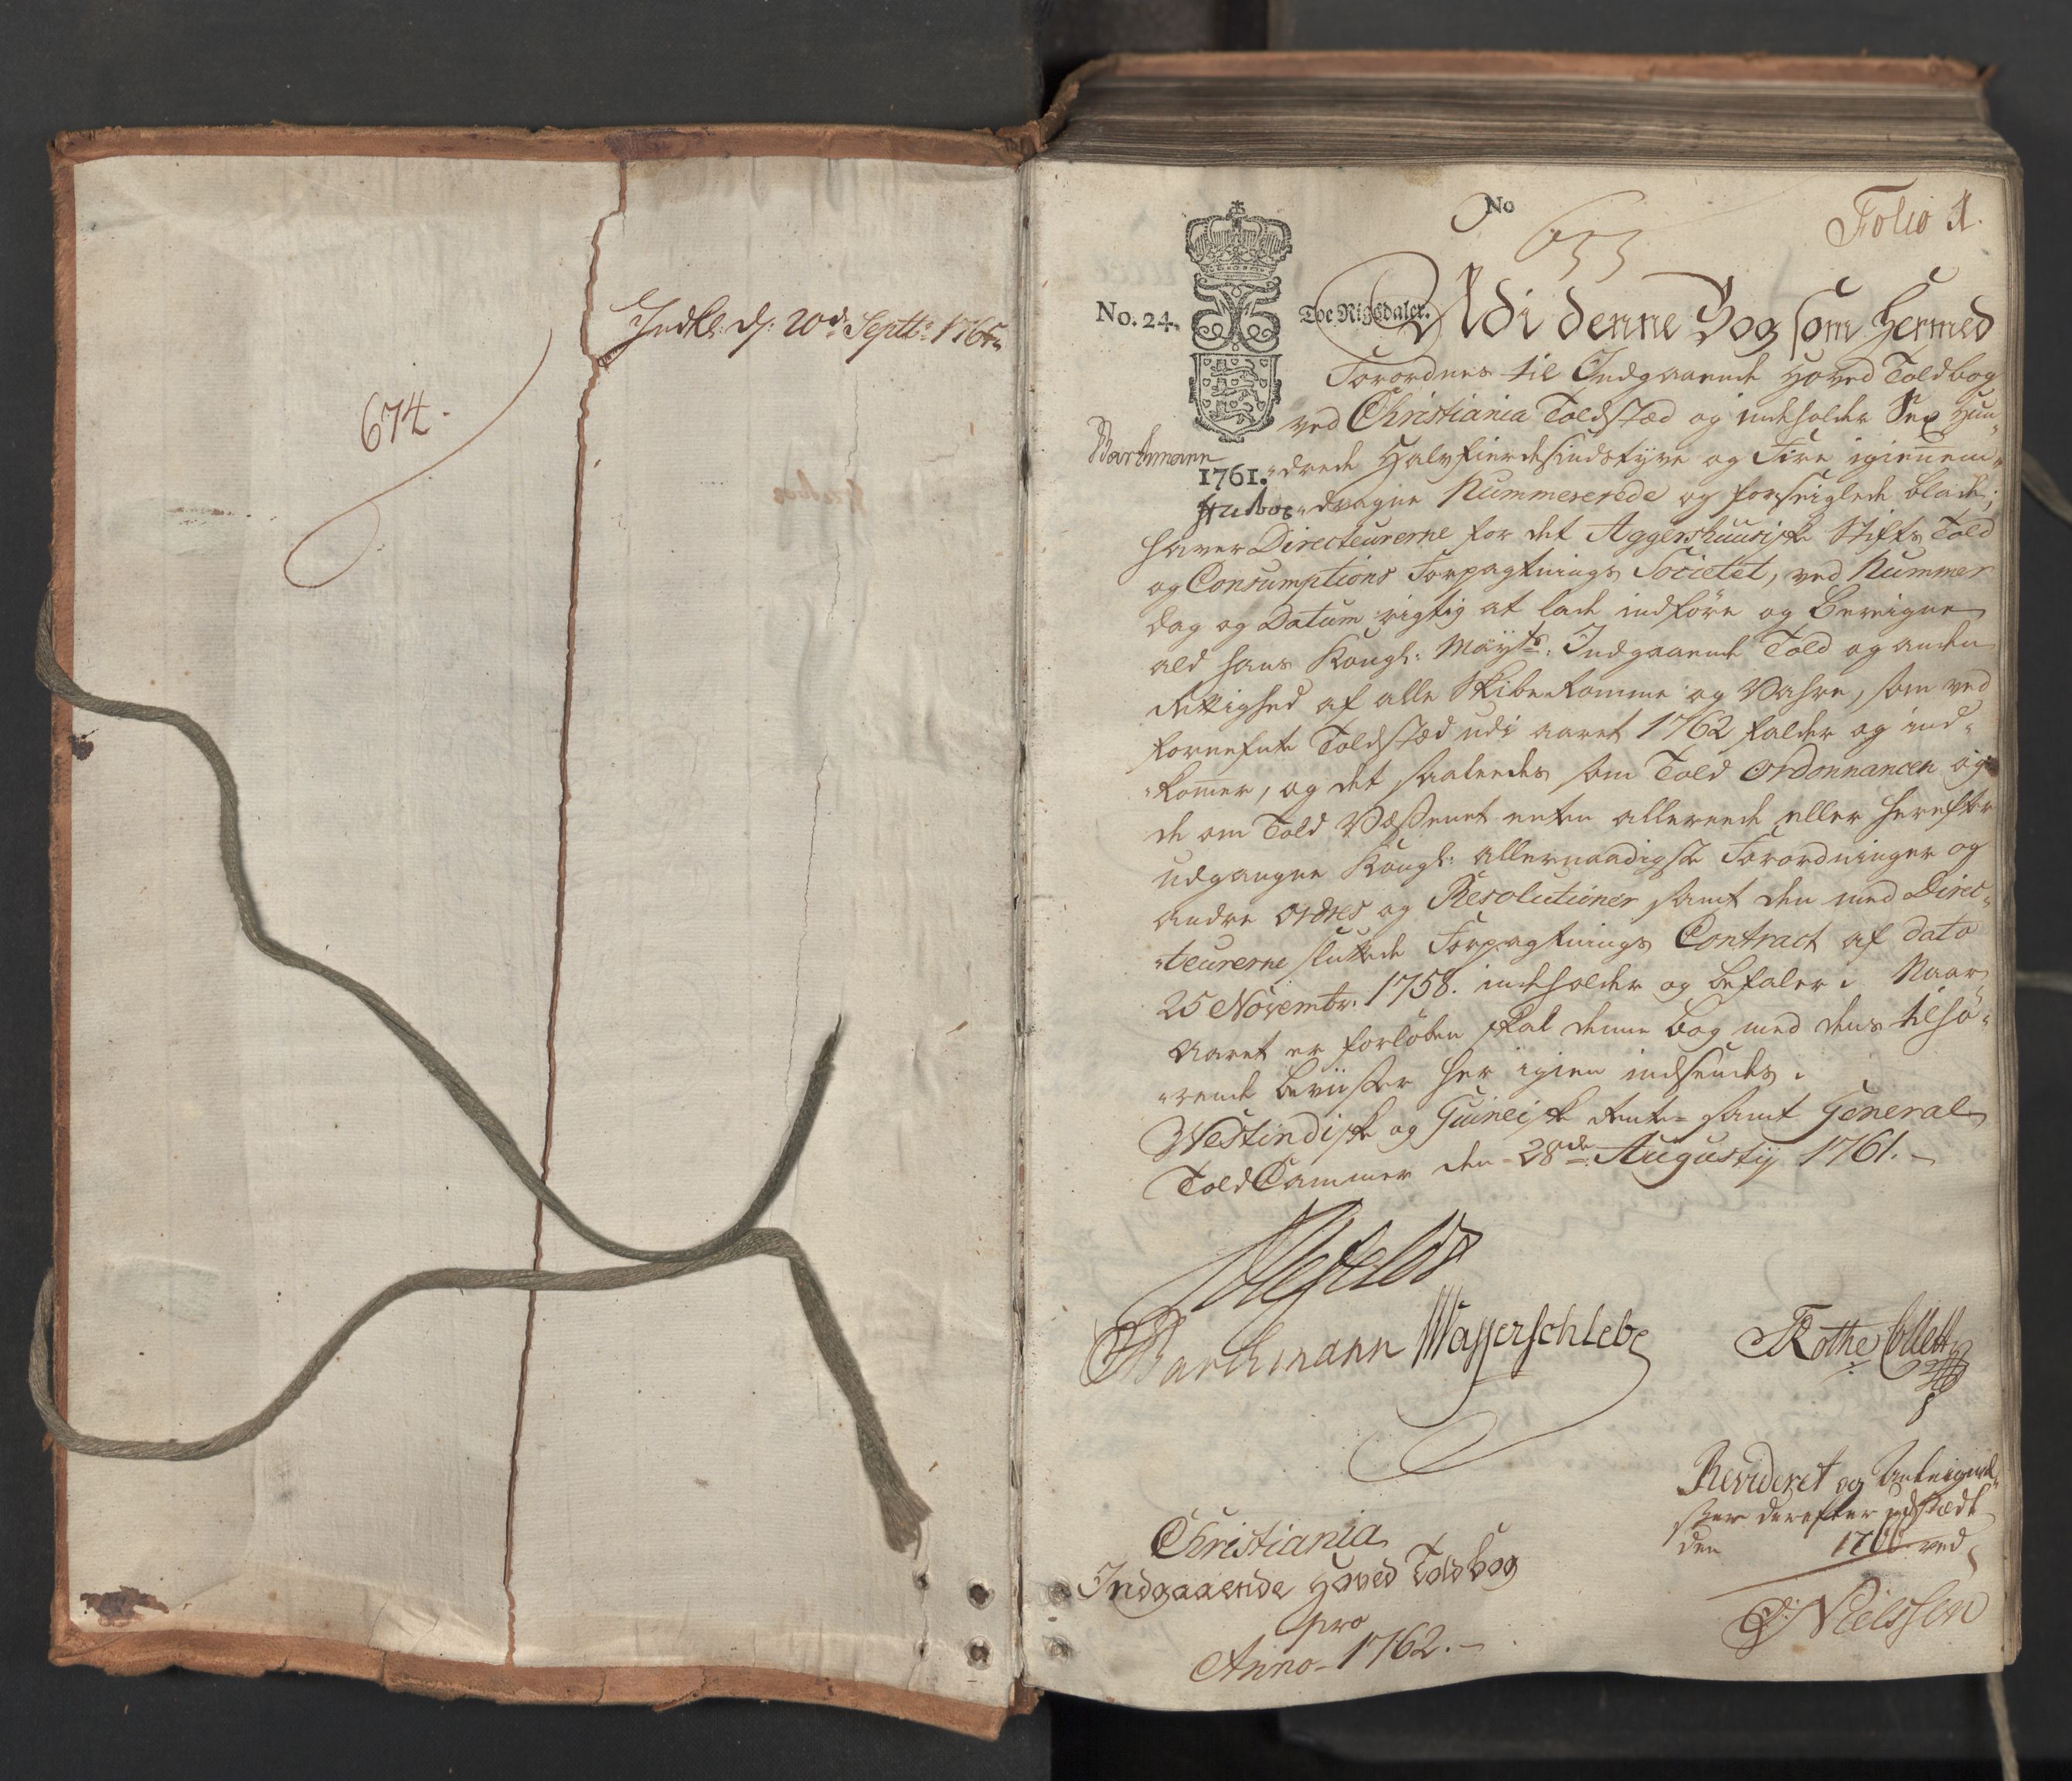 Indk: d: 20de Septbr: 1765
674.
No
633
Folio 1.
No. 24.
Toe Rigsdaler.
Udi denne Bog som hermed
Forordnes til Indgaaende Hoved Toldbog
ved Christiania Toldstæd og indeholder Sex Hun-
Barthmann
1761.
-drede Halvfierdesindstyve og Fire igiennem-
-dragne Nummererede og forseiglede blade;
haver Directeurerne for det Aggershuusiske Stifts Told
og Consumptions Forpagtnings Societet, ved Nummer
dag og Datum rigtig at lade indføre og beregne
ald hans Kongl: Mayts: Indgaaende Told og anden
Rettighed af alle Skibe komme og Vahre, som ved
fornefnte Toldstæd udi aaret 1762 falder og ind-
-komer, og det saaledes som Told Ordonnancen og
de om Told Væsenet enten allereede eller herefter
udgangne Kongl: allernaadigste Forordninger og
andre Ordres og Resolutioner samt den med Direc-
-teurerne sluttede Forpagtnings Contract af dato
25 Novembr: 1758. indeholder og befaler. Naar
Aaret er forløben skal denne bog med dens tilhø-
-rende beviiser her igien indsendes.
Westindiske og Guineiske Rente- samt General
Told Cammer den 28de Augustij 1761.
Barthmann Wasserschlebe TRothe Collett
Revideret og Antegnel-
ser derefter udstædt
den 176 ved
Nielssen
Christiania
Indgaaende Hoved Toldbog
pro
Anno 1762.